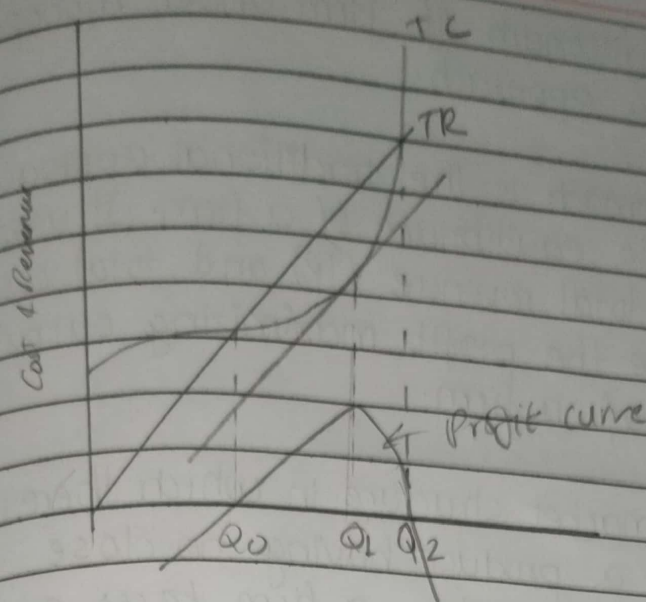 TC
TR
Cost & Revenue
Profit curve
Q0 Q1 Q2